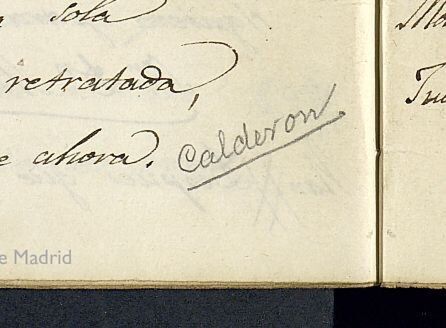 sola
retratada,
e ahora. Calderon.
e Madrid